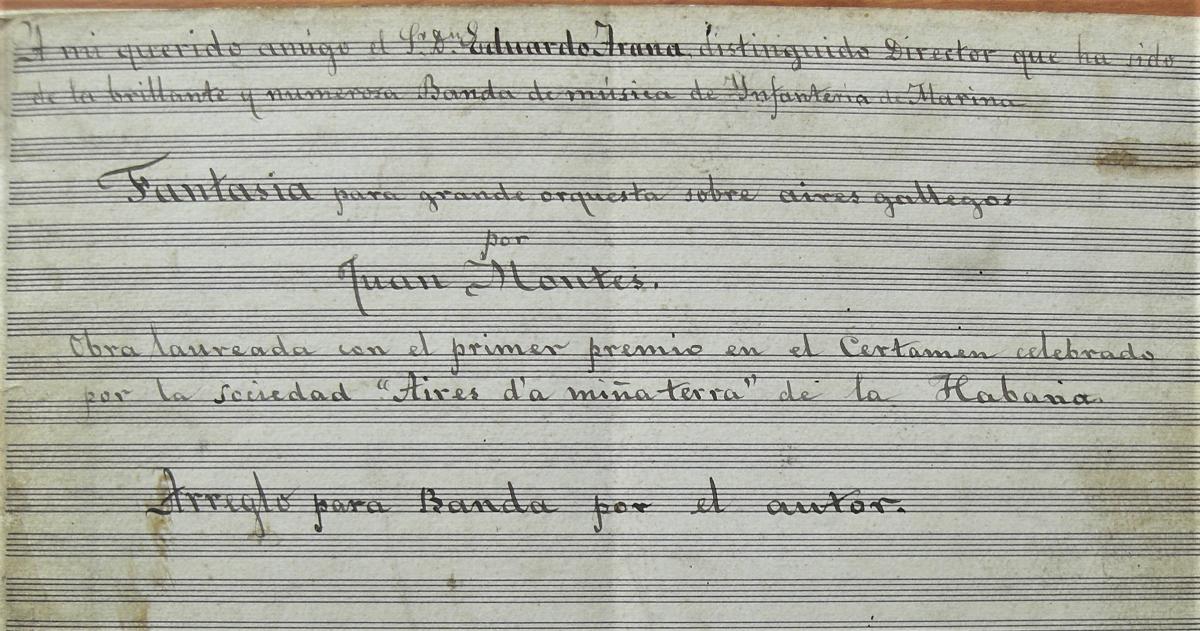 A mi querido amigo el Sr. Dn. Eduardo Arana, distinguido Director que ha sido
de la brillante y numerosa Banda de música de Ynfanteria de Marina
Fantasia para grande orquesta sobre aires gallegos
por
Juan Montes.
Obra laureada con el primer premio en el Certamen celebrado
por la sociedad "Aires d'a miña terra" de la Habana.
Arreglo para Banda por el autor.